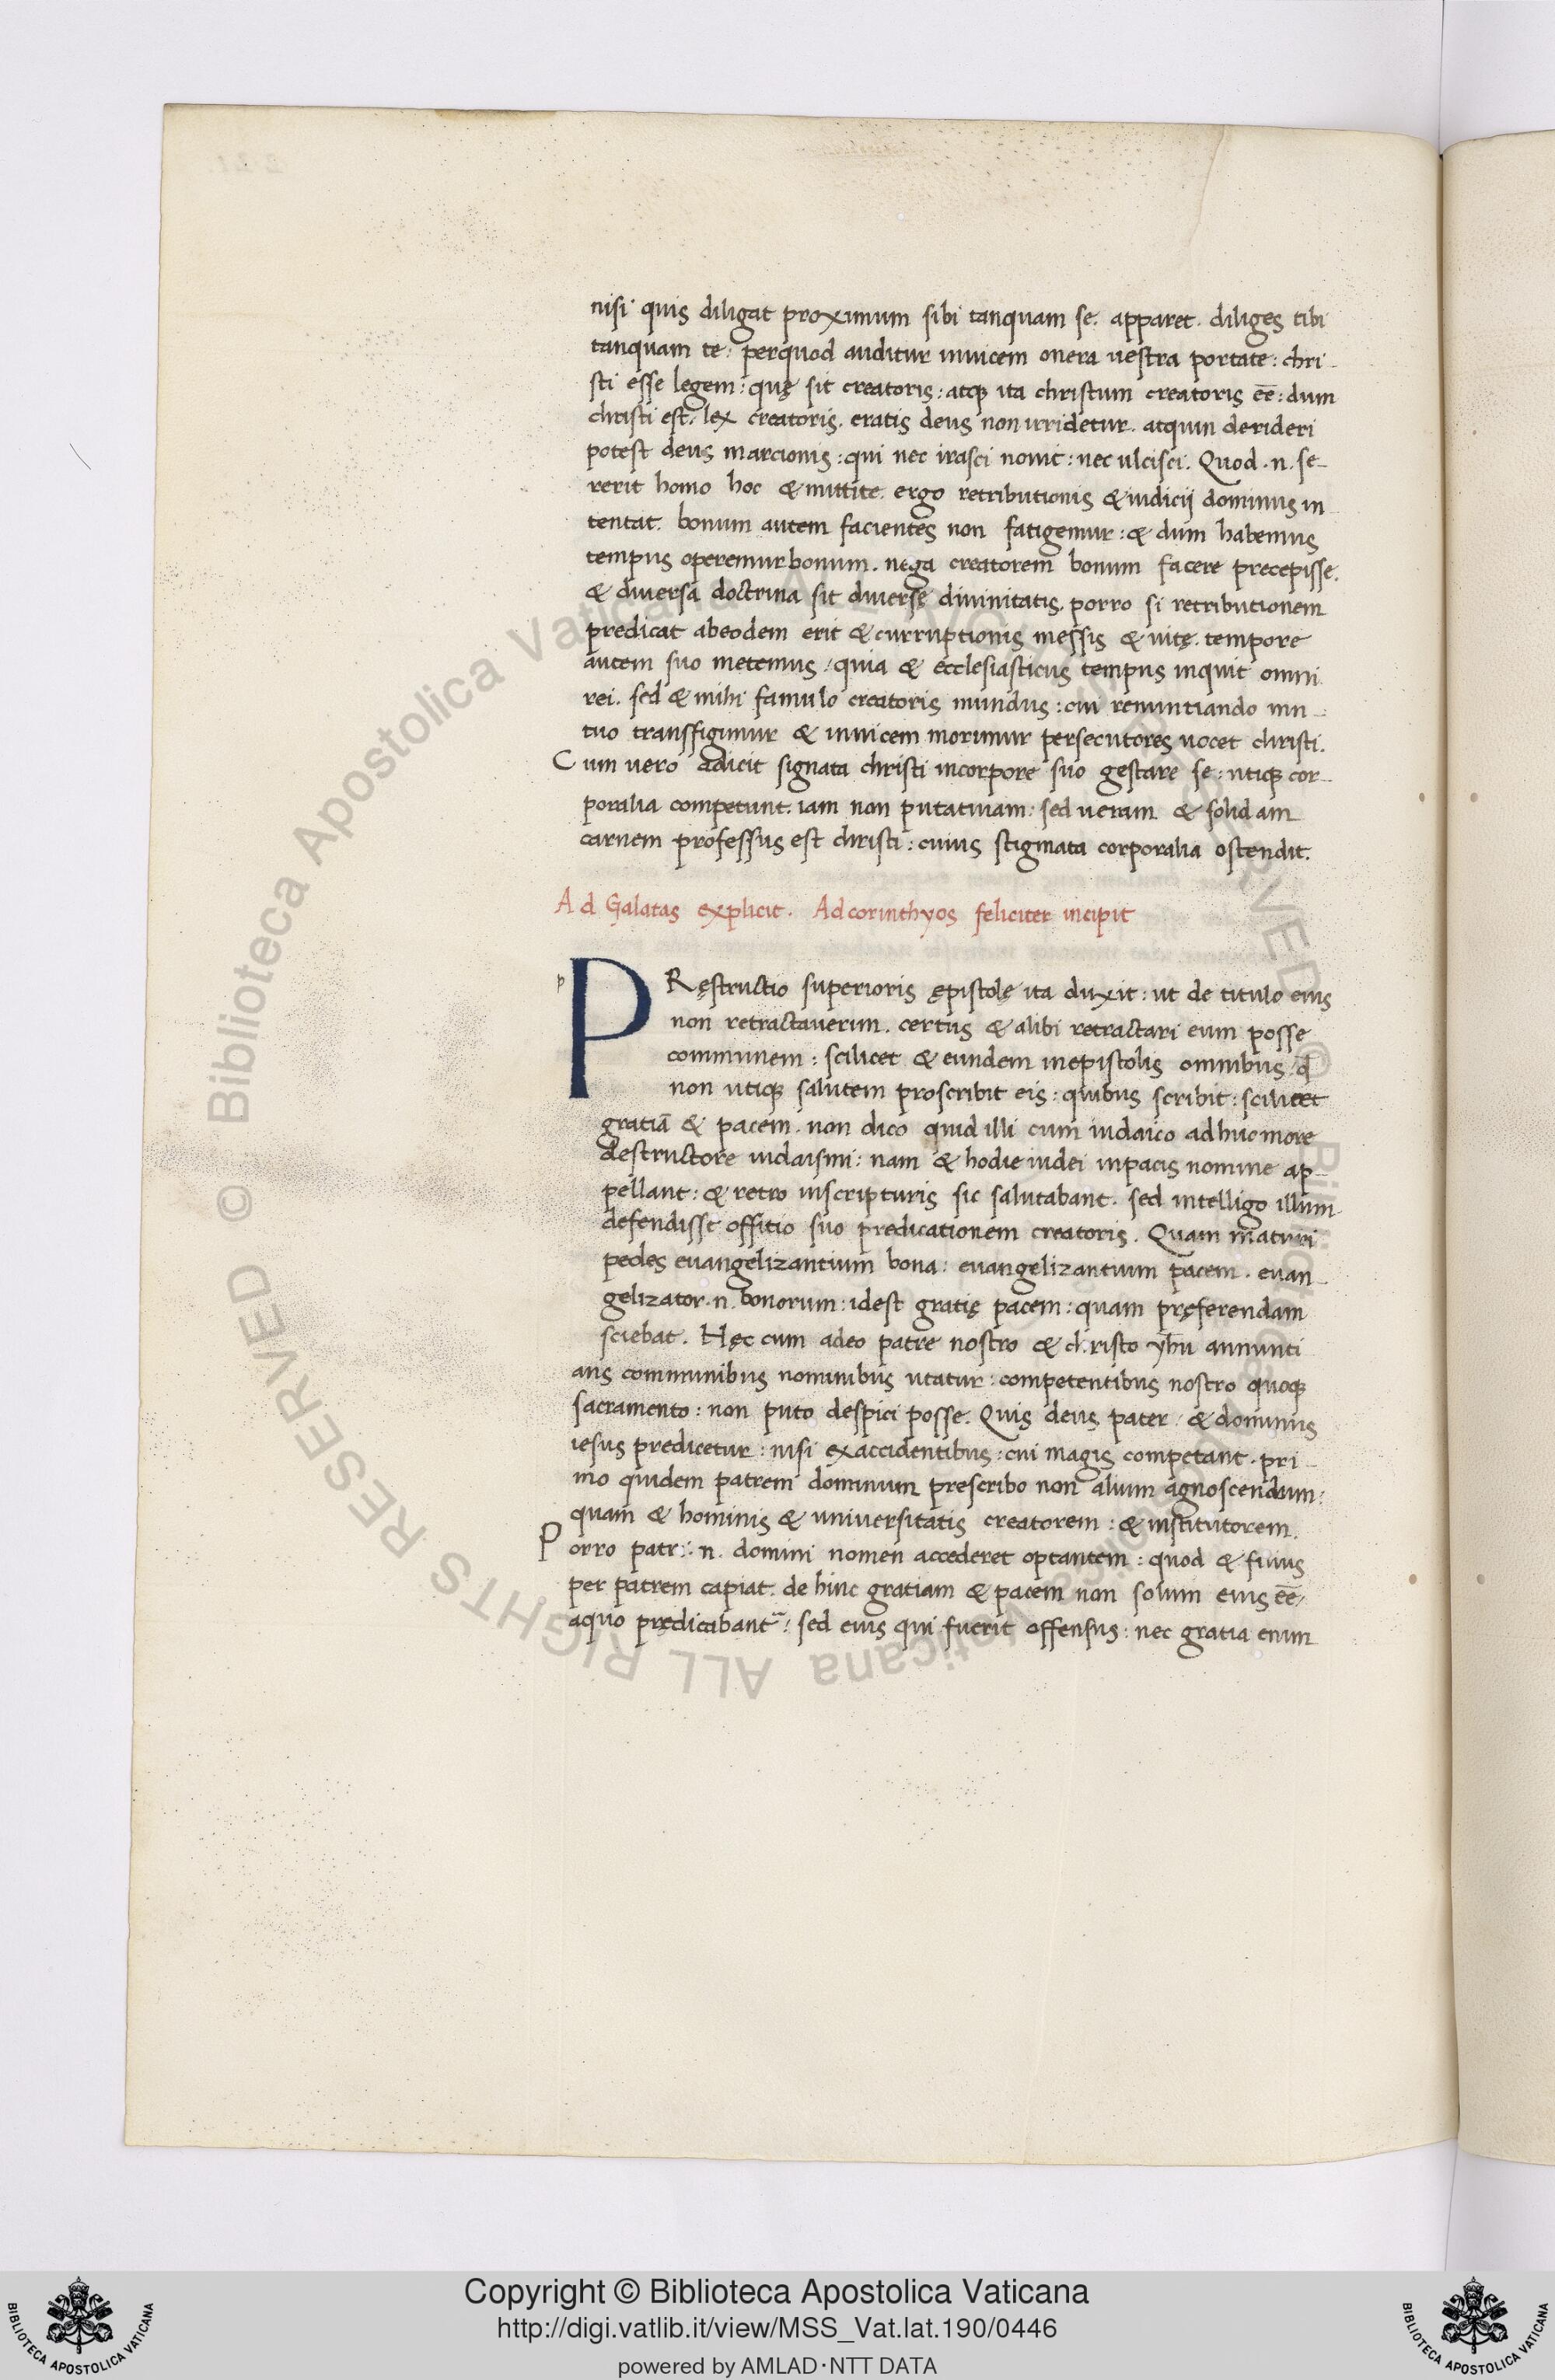 nisi quis diligat proximum sibi tanquam se. apparet. diliges tibi
tanquam te: perquod auditur inuicem onera uestra portate: chri-
sti esse legem: quę sit creatoris: atqꝫ ita christum creatoris eē: dum
christi est. lex creatoris. eratis deus non irridetur. atquin derideri
potest deus marcionis: qui nec irasci nouit: nec ulcisci. Quod .n. se-
rerit homo hoc & mittite. ergo retributionis & iudicij dominus in-
tentat. bonum autem facientes non fatigemur: & dum habemus
tempus operemur bonum. nega creatorem bonum facere precepisse.
& diuersa doctrina sit diuersę diuinitatis. porro si retributionem
predicat abeodem erit & curruptionis messis & uitę. tempore
autem suo metemus: quia & ecclesiasticus tempus inquit omni
rei. sed & mihi famulo creatoris mundus: cui renuntiando mu-
tuo transfigimur & inuicem morimur persecutores uocet christi.
Cum uero adicit signata christi incorpore suo gestare se: utiqꝫ cor-
poralia competunt. iam non putatiuam: sed ueram & solidam
carnem professus est christi: cuius stigmata corporalia ostendit.
Ad Galatas explicit. Ad corinthyos feliciter incipit
p
PRęstructio superioris ępistolę ita duxit: ut de titulo eius
non retractauerim. certus & alibi retractari eum posse
communem: scilicet & eundem inepistolis omnibus: ꝙ
non utiqꝫ salutem proscribit eis: quibus scribit: scilicet
gratiā & pacem. non dico quid illi cum iudaico adhuc more
destructore iudaismi: nam & hodie iudei inpacis nomine ap-
pellant: & retro inscripturis sic salutabant. sed intelligo illum
defendisse offitio suo predicationem creatoris. Quam maturi
pedes euangelizantium bona: euangelizantium pacem. euan-
gelizator .n. bonorum: idest gratię pacem: quam pręferendam
sciebat. Hęc cum adeo patre nostro & christo yħu annunti
ans communibus nominibus utatur: competentibus nostro quoqꝫ
sacramento: non puto despici posse. Quis deus pater: & dominus
iesus predicetur: nisi exaccidentibus: cui magis competant. pri-
mo quidem patrem dominum prescribo non alium agnoscendum:
quam & hominis & uniuersitatis creatorem: & institutorem.
Porro patri .n. domini nomen accederet optantem: quod & fuius
per patrem capiat. de hinc gratiam & pacem non solum eius eē:
aquo pręđicabant̄: sed eius qui fuerit offensus: nec gratia enim
Copyright © Biblioteca Apostolica Vaticana
http://digi.vatlib.it/view/MSS_Vat.lat.190/0446
powered by AMLAD·NTT DATA
BIBLIOTECA APOSTOLICA VATICANA
BIBLIOTECA APOSTOLICA VATICANA
© Biblioteca Apostolica Vaticana ALL RIGHTS RESERVED
© Biblioteca Apostolica Vaticana ALL RIGHTS RESERVED